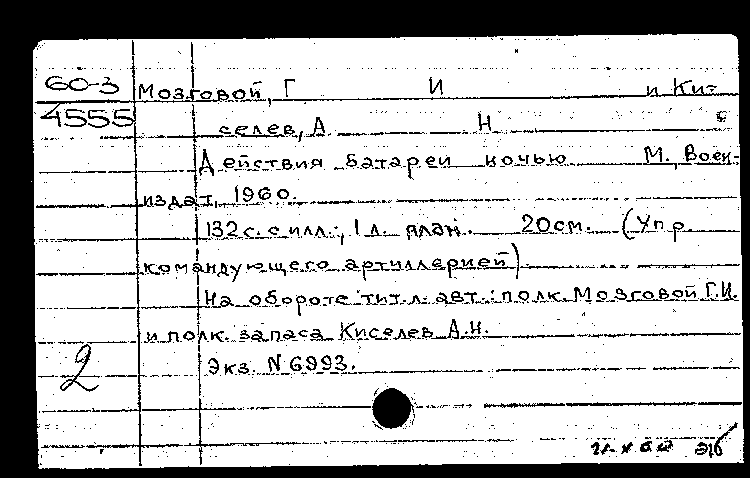 60-3 Мозговой, Г И и Ки-
4555 селев, А Н
Действия батареи ночью М., Воен-
издат, 1960.
132 с. с илл., 1 л. план. 20 см. (Упр.
командующего артиллерией)
На обороте тит. л. авт.: полк. Мозговой Г.И.
и полк. запаса Киселев А.Н.
2 Экз. N 6993.